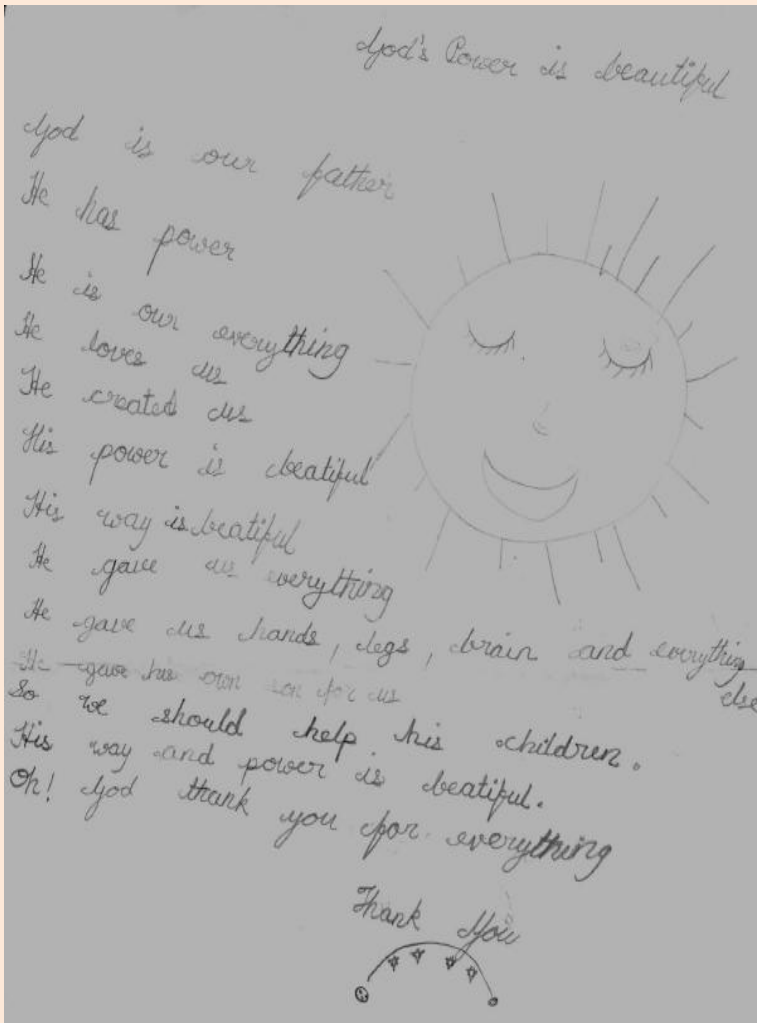 God's Power is beautiful
God is our father
He has power
He is our everything
He loves us
He created us
His power is beatiful
His way is beatiful
He gave us everything
He gave us hands, legs, brain and everything
else
He gave his own son for us
So we should help his children.
His way and power is beatiful.
Oh! God thank you for everything
Thank You